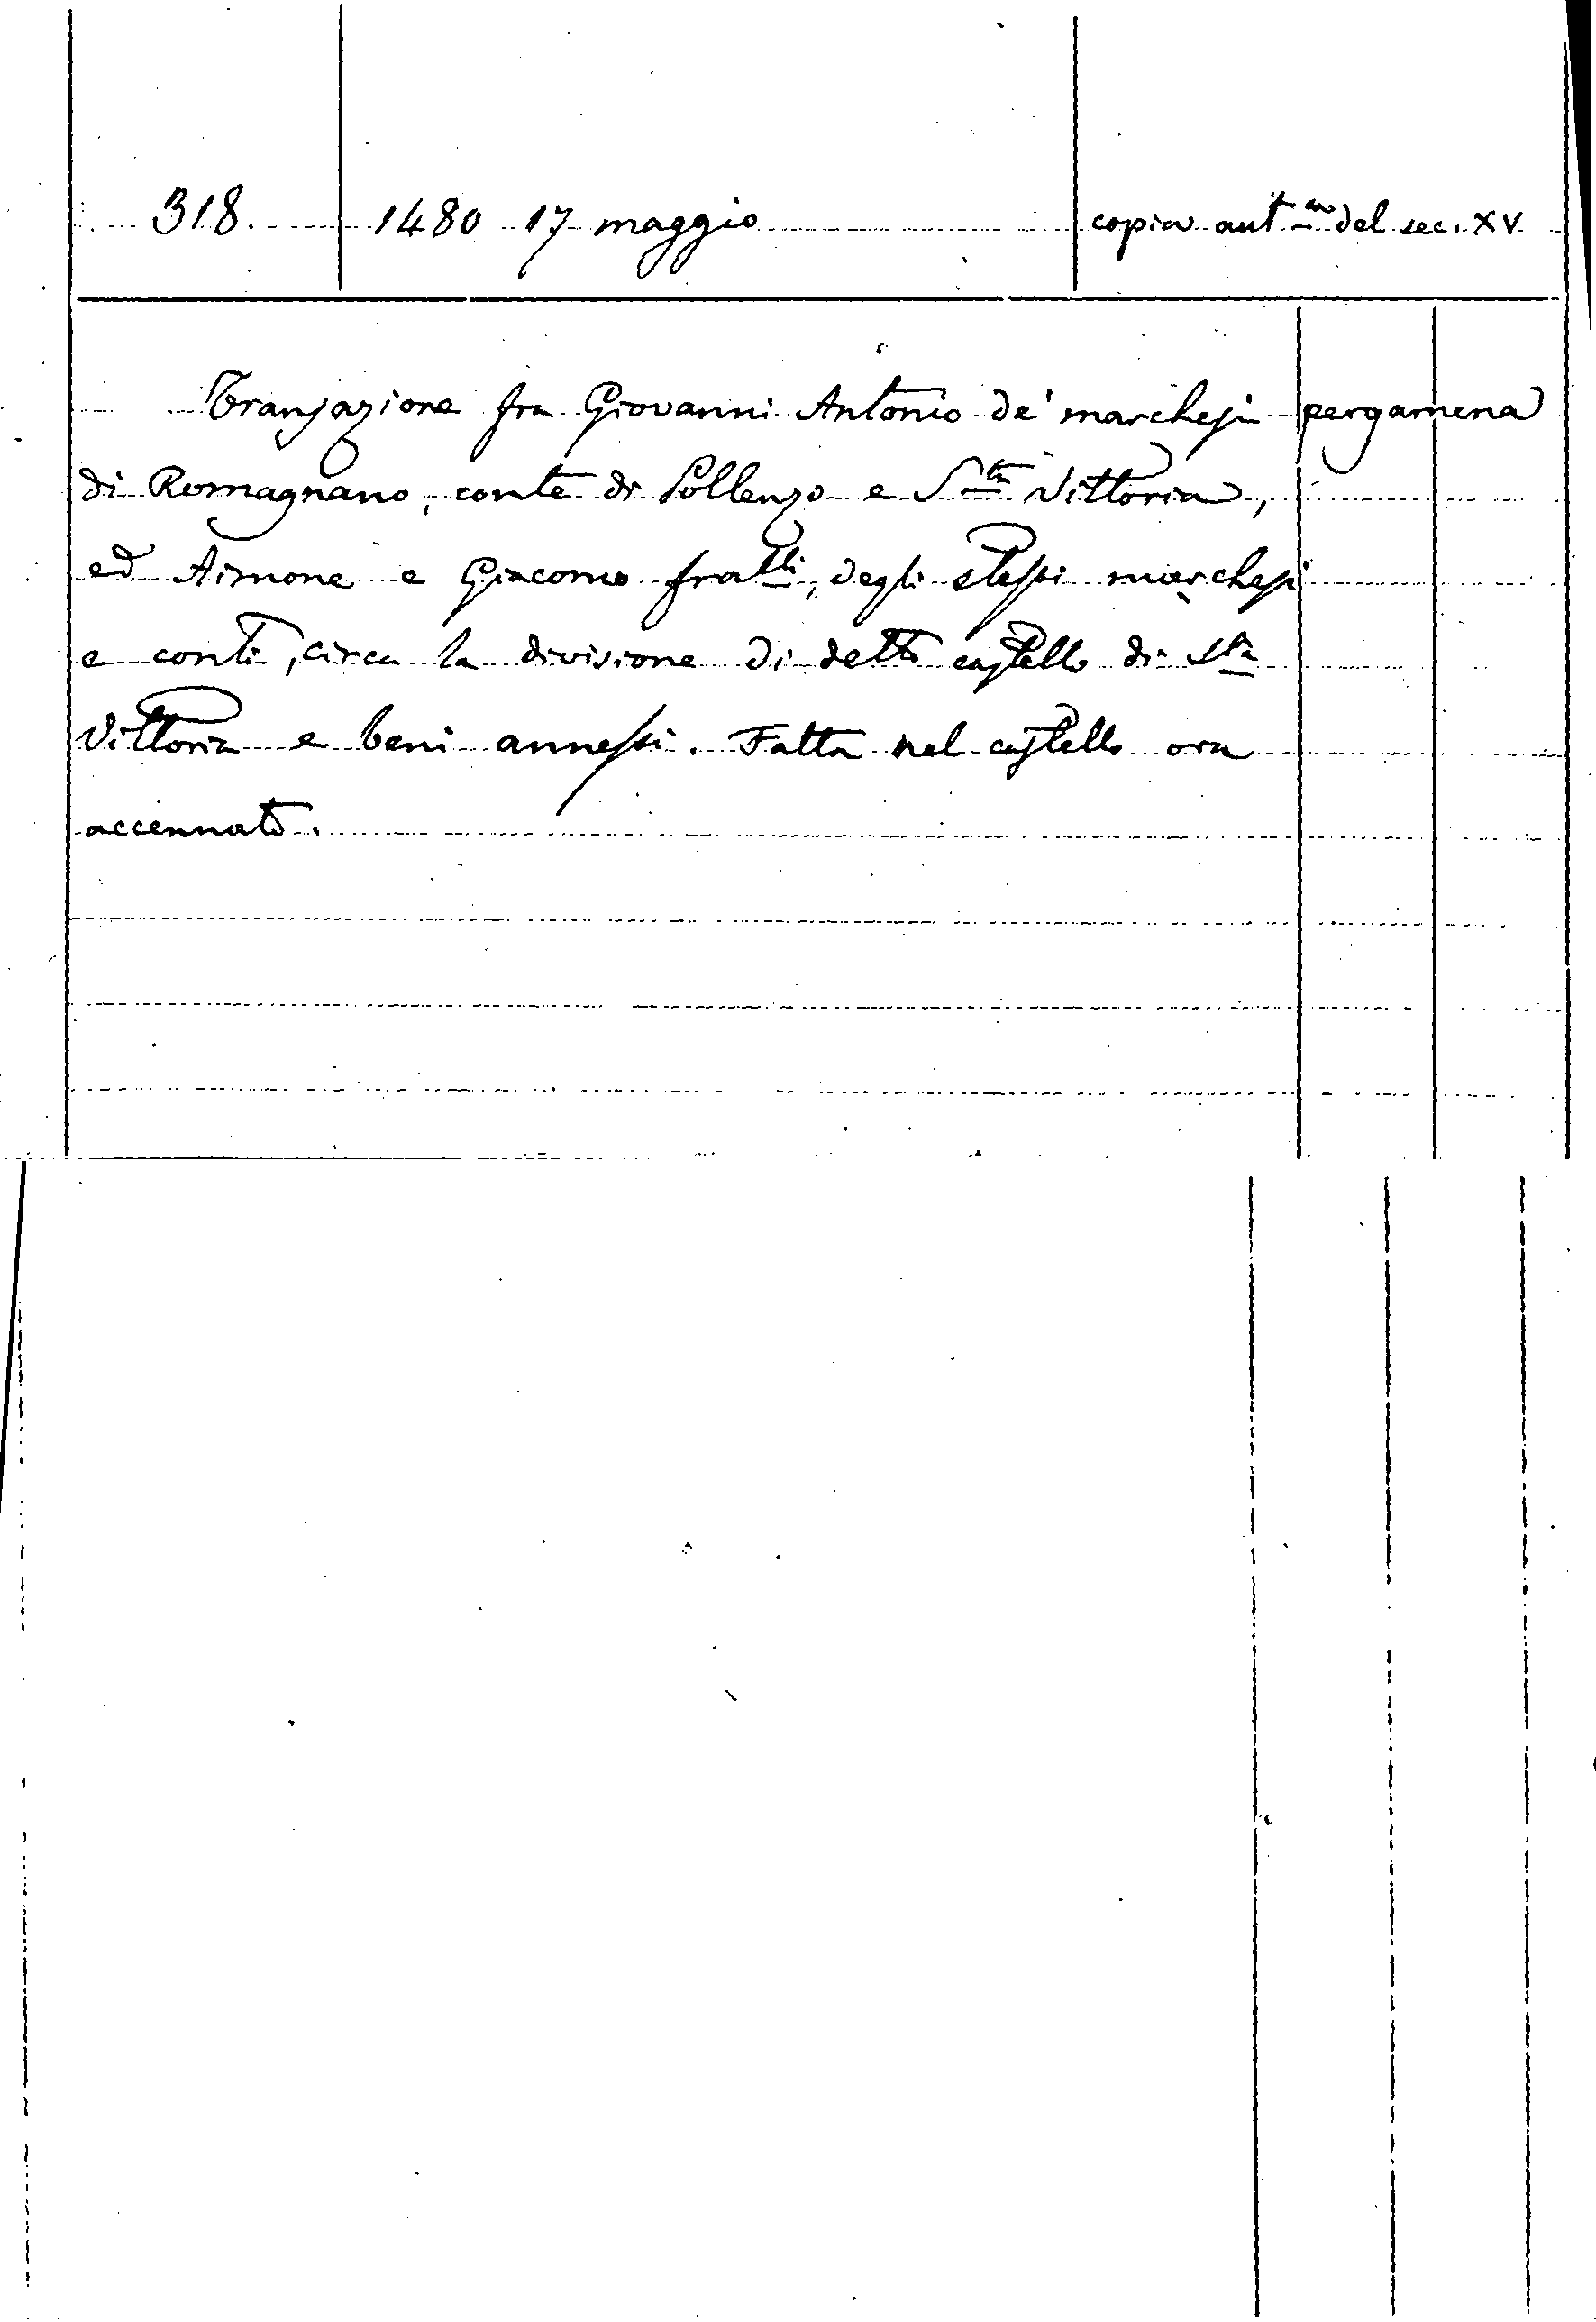 318. 1480 17 maggio copia aut.ca del sec. XV
Transazione fra Giovanni Antonio de' marchesi pergamena
di Romagnano, conte di Pollenzo e Sta Vittoria,
ed Aimone e Giacomo fratlli, degli stessi marchesi
e conti, circa la divisione di detto castello di Sta
Vittoria e beni annessi. Fatta nel castello ora
accennato.